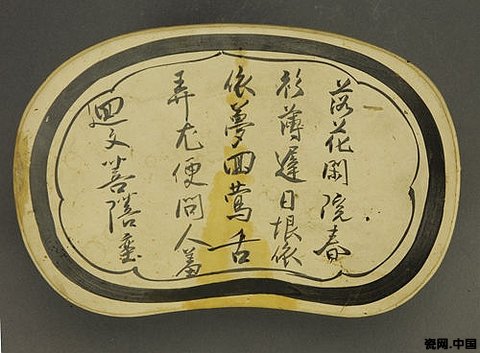 落花閑院春
衫薄遲日恨依
依夢囬鶯舌
弄尤便問人羞
迴文菩薩蛮
瓷网.中国